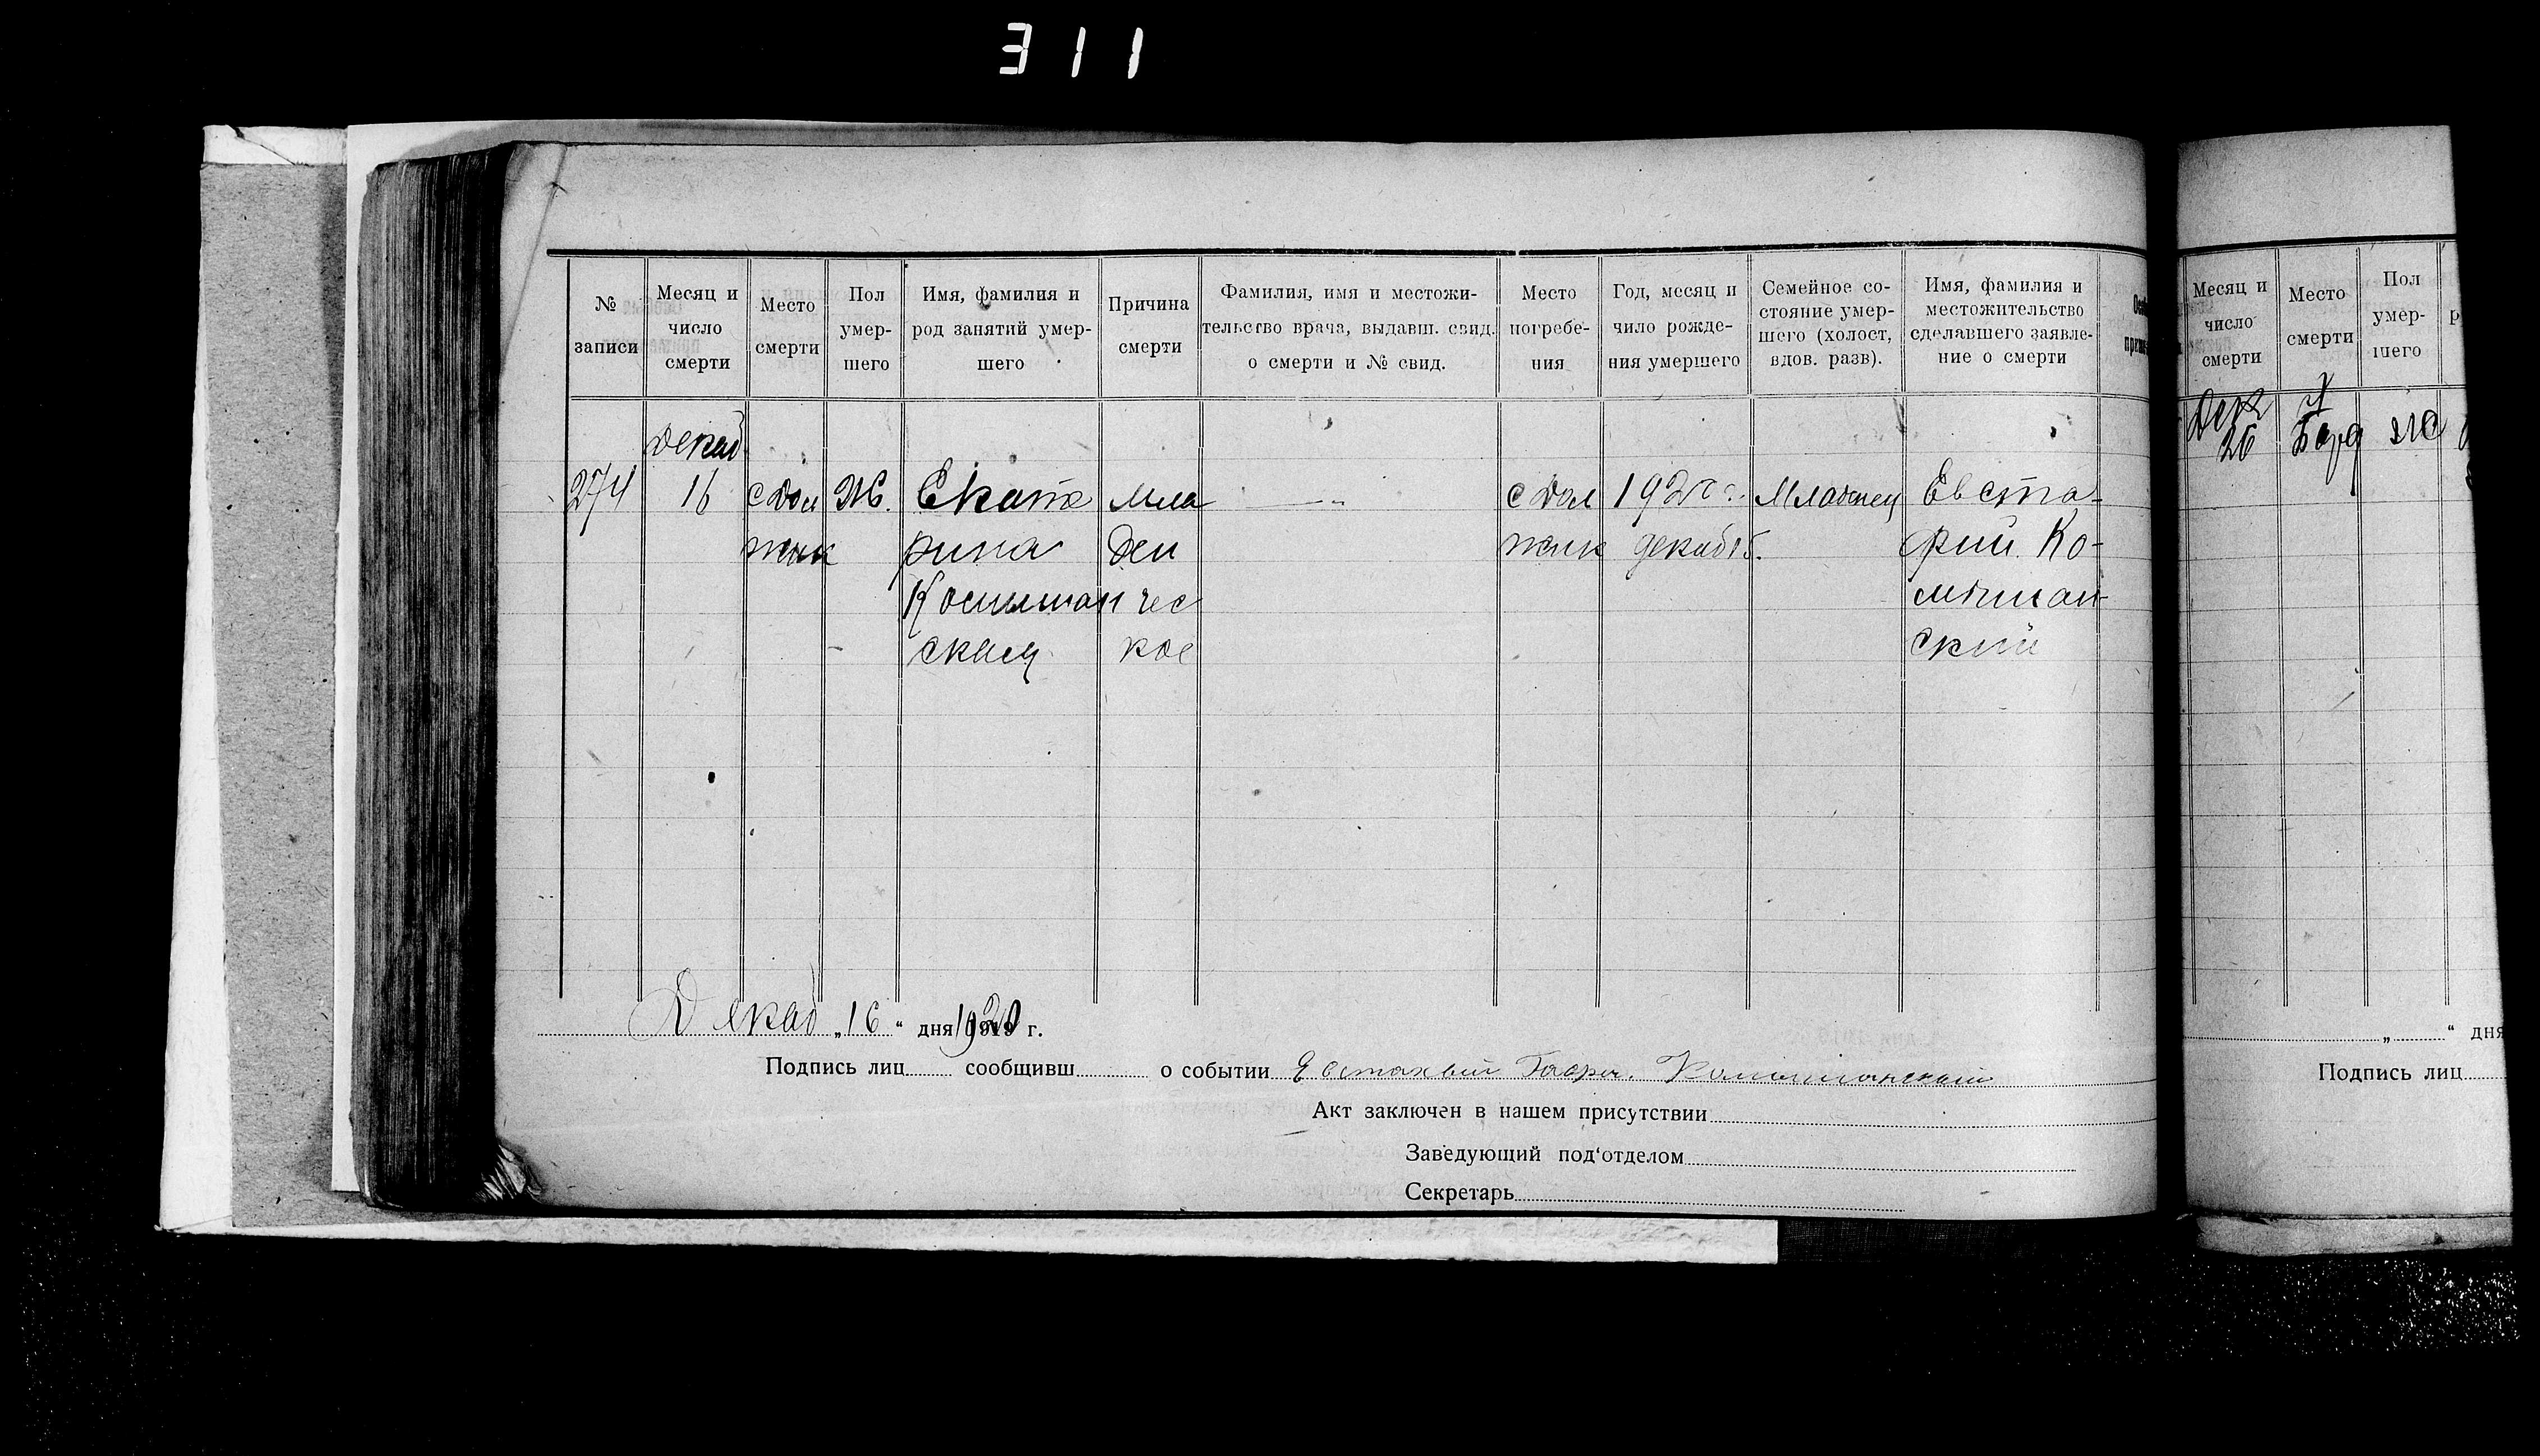 311
№ записи
Месяц и число смерти
Место смерти
Пол умер-шего
Имя, фамилия и род занятий умер-шего
Причина смерти
Фамилия, имя и местожи-тельство врача, выдавш. свид. о смерти и № свид.
Место погребе-ния
Год, месяц и чило рожде-ния умершего
Семейное со-стояние умер-шего (холост, вдов. разв).
Имя, фамилия и местожительство сделавшего заявле-ние о смерти
Декаб
274 16 с Дол Ж. Екате Мла с Дол 1920 г. Младенец Евста-
жик рина ден жик декаб 15. фий Ко-
чес
ская кое ский
Декаб „16“ дня 1920 г.
Подпись лиц сообщивш о событии Евстахвий Гавр.
Акт заключен в нашем присутствии
Заведующий под'отделом
Секретарь
Месяц и число смерти
Место смерти
Пол умер-шего
Дек
26 Ж
„ “ дня
Подпись лиц